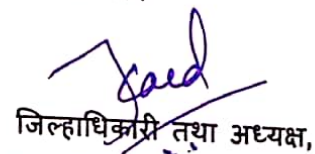 जिल्हाधिकारी तथा अध्यक्ष,